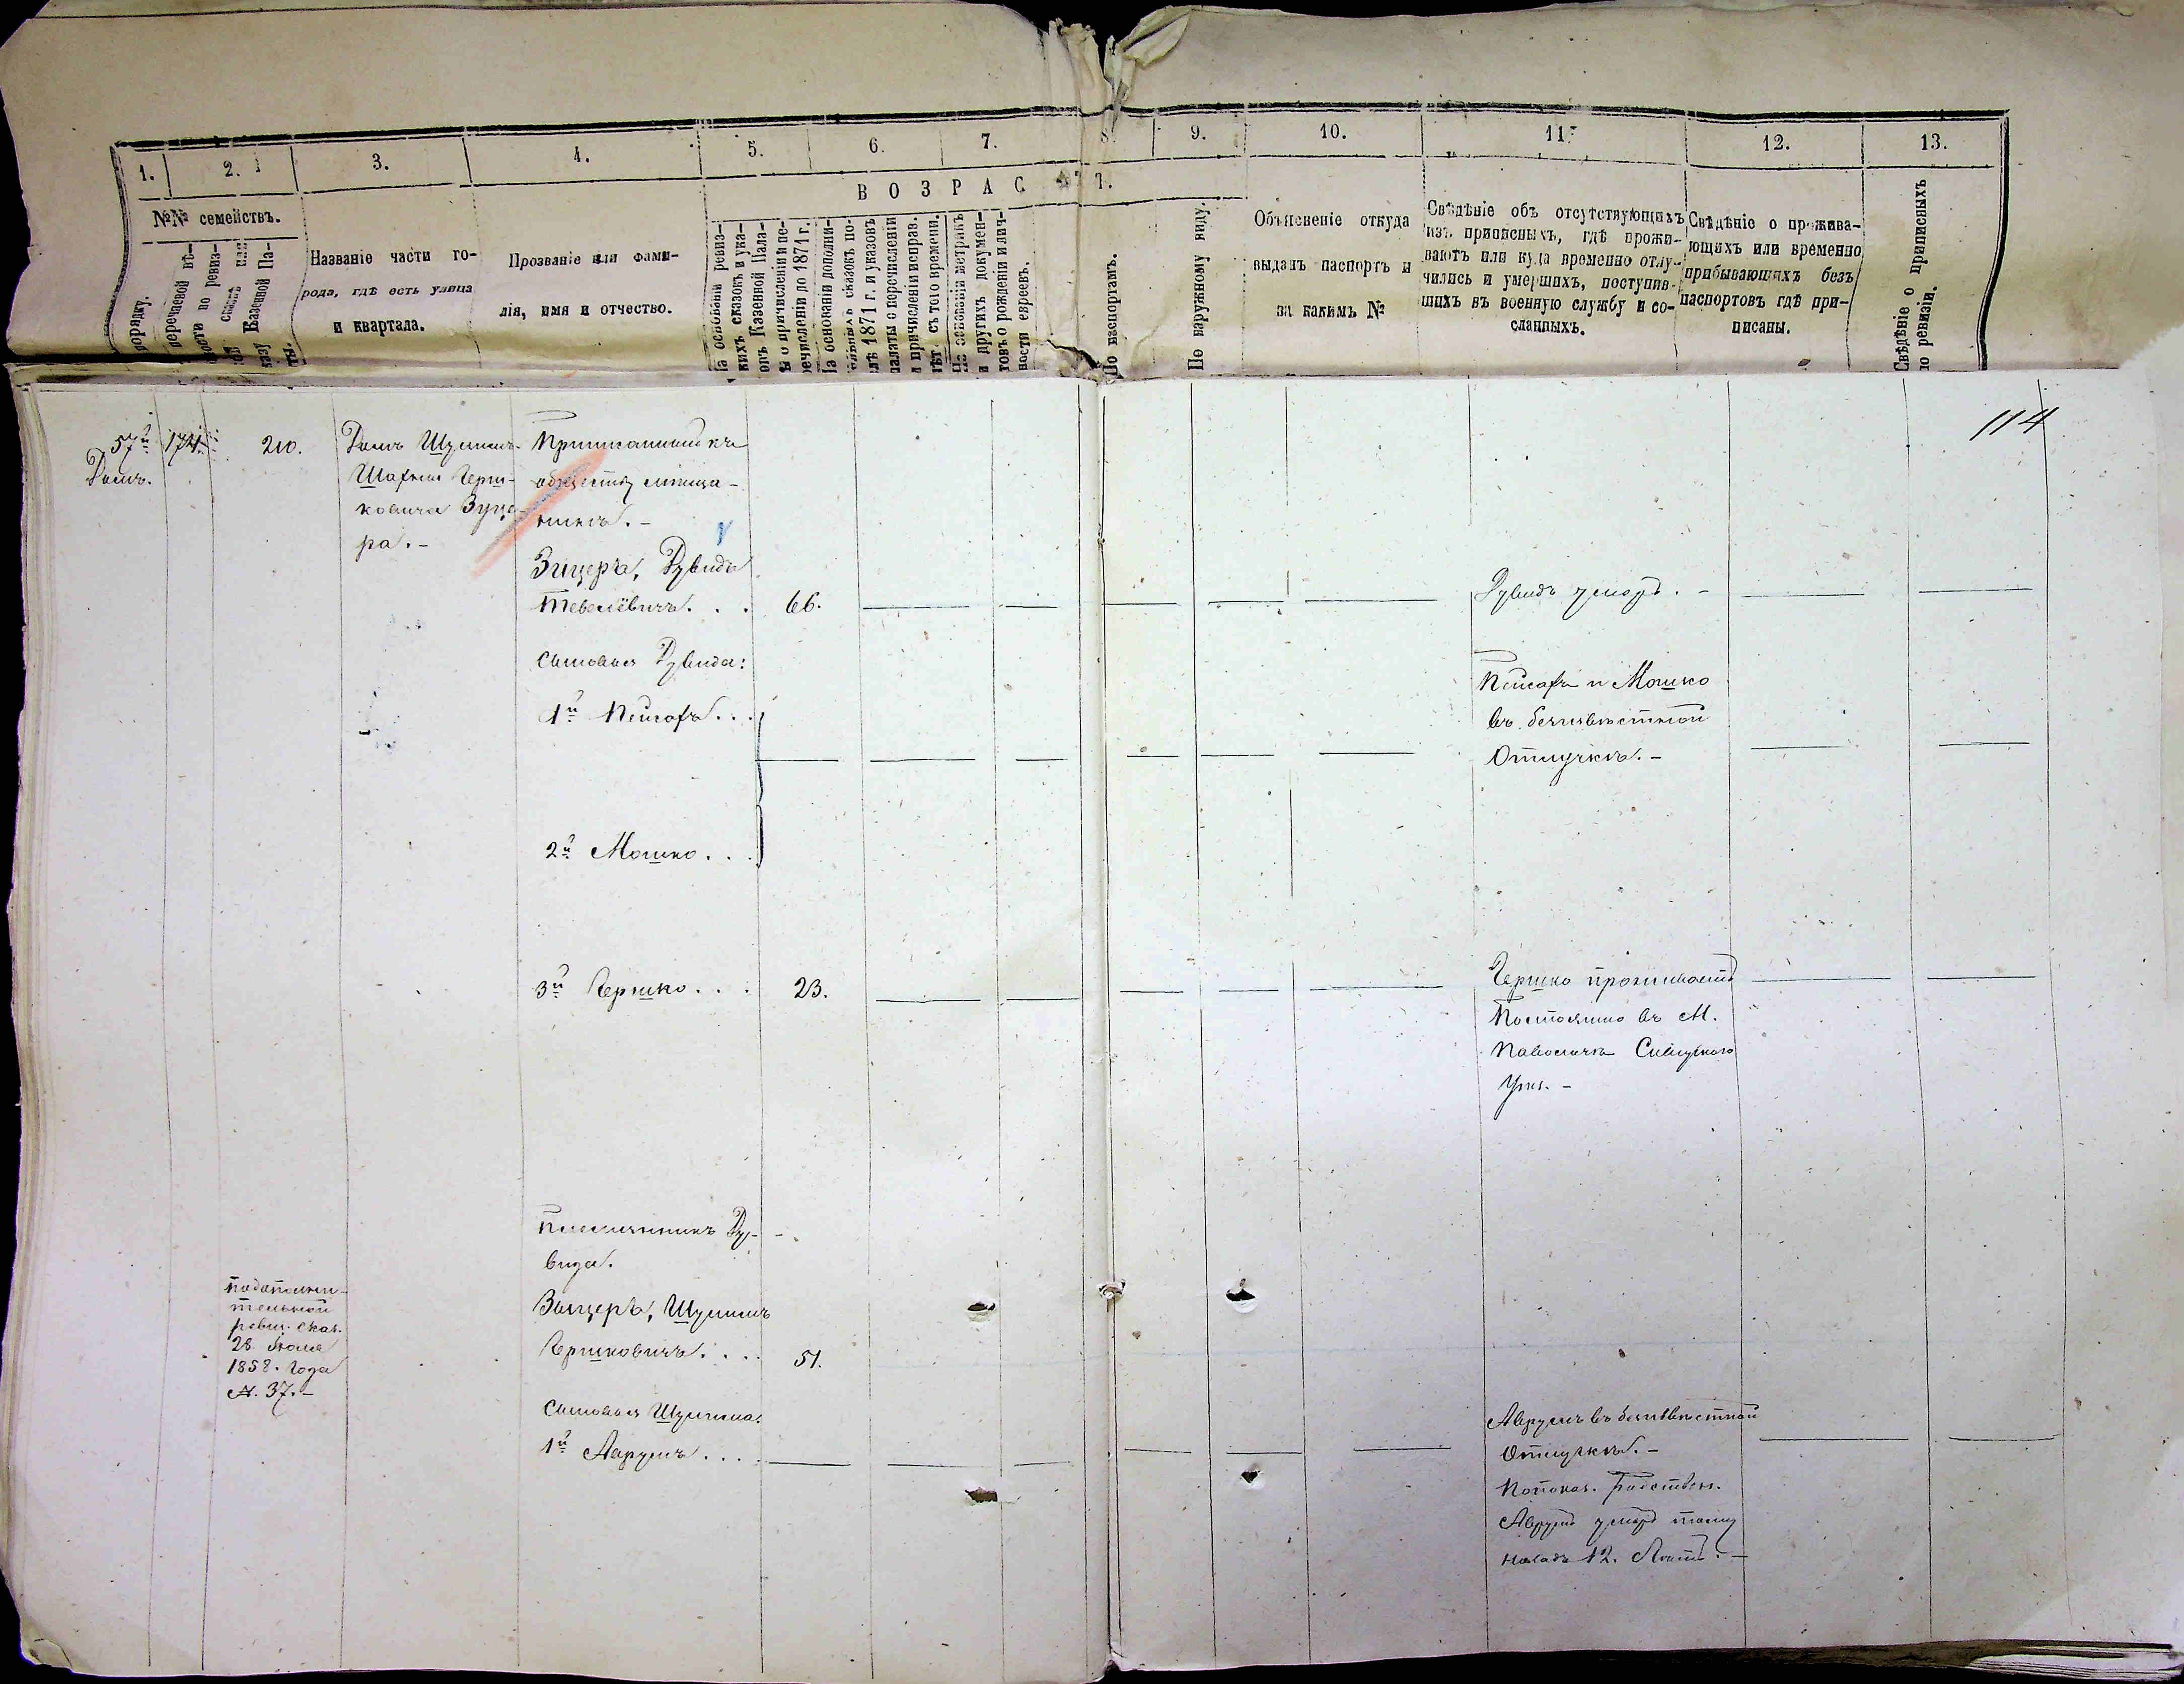 1. 2. 3. 4. 5. 6. 7. 8. 9. 10. 11. 12. 13.
ВОЗРАСТ.
№№ семействъ.
порядку.
перечневой вѣ-
ности по ревиз-
Казенной Па-
Названіе части го-
рода, гдѣ есть улица
и квартала.
Прозваніе или фами-
лія, имя и отчество.
На основаніи ревиз-
скихъ сказокъ и ука-
зовъ Казенной Пала-
ты о причисленіи и пе-
речисленіи до 1871 г.
На основаніи дополни-
тельныхъ сказокъ по-
слѣ 1871 г. и указовъ
палаты о перечисленіи
и причисленіи исправ.
лѣт. съ того времени.
На основаніи метрикъ
и другихъ докумен-
товъ о рожденіи и лич-
ности евреевъ.
По паспортамъ.
По наружному виду.
Объясненіе откуда
выданъ паспортъ и
за какимъ №
Свѣдѣніе объ отсутствующихъ
изъ приписныхъ, гдѣ прожи-
ваютъ или куда временно отлу-
чились и умершихъ, поступив-
шихъ въ военную службу и со-
сланныхъ.
Свѣдѣніе о прожива-
ющихъ или временно
прибывающихъ безъ
паспортовъ гдѣ при-
писаны.
Свѣдѣніе о приписныхъ
по ревизіи.
114
57й 174. 210.
Домъ.
Домъ Шулима-
Шафтия Герш-
ковича Зуце-
ра.-
Приписанный къ
обществу мѣща-
нинъ.-
Зицеръ, Дувидъ
Тевелёвичъ. . . 66.
Дувидъ умеръ. -
Сыновья Дувида:
1й Пейсахъ. . .
Пейсахъ и Мошко
въ безизвѣстной
Отлучкѣ.-
2й Мошко. . .
3й Гершко. . . 23.
Гершко проживаетъ
Постоянно въ М.
Паволочкѣ Сквирскаго
Уѣз.-
Племянникъ Ду-
вида.
Зыцеръ, Шулимъ
Гершковичъ. . . . 51.
Подополни-
тельной
ревиз. сказ.
28. Июля
1858. Года
№. 37.-
Сыновья Шулима:
1й Аврумъ . . . .
Аврумъ въ безизвѣстной
Отлучкѣ.-
Попоказ. Родствен.
Аврумъ умеръ тому
назадъ 12. Лѣтъ.-